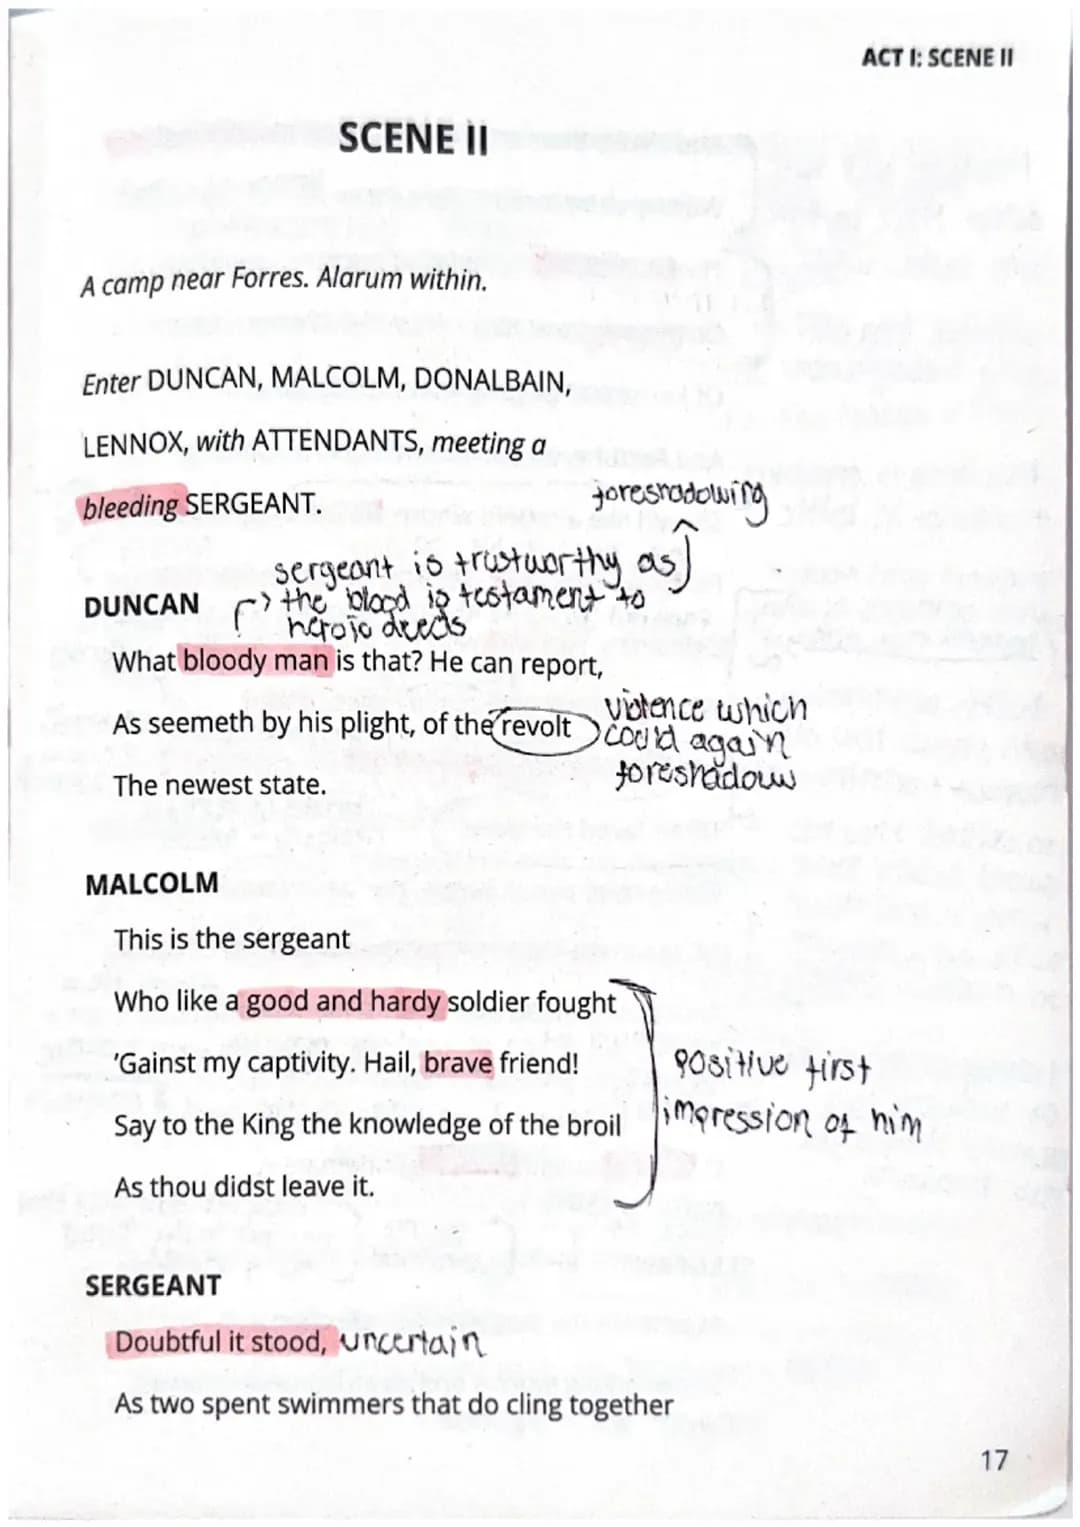 ACT I: SCENE II
SCENE II
A camp near Forres. Alarum within.
Enter DUNCAN, MALCOLM, DONALBAIN,
LENNOX, with ATTENDANTS, meeting a
bleeding SERGEANT.
foreshadowing
sergeant is trustworthy as
the blood is testament to
heroic deeds
DUNCAN
What bloody man is that? He can report,
As seemeth by his plight, of the revolt
The newest state.
violence which
could again
foreshadow
MALCOLM
This is the sergeant
Who like a good and hardy soldier fought
'Gainst my captivity. Hail, brave friend!
Say to the King the knowledge of the broil
As thou didst leave it.
positive first
impression of him
SERGEANT
Doubtful it stood, uncertain
As two spent swimmers that do cling together
17